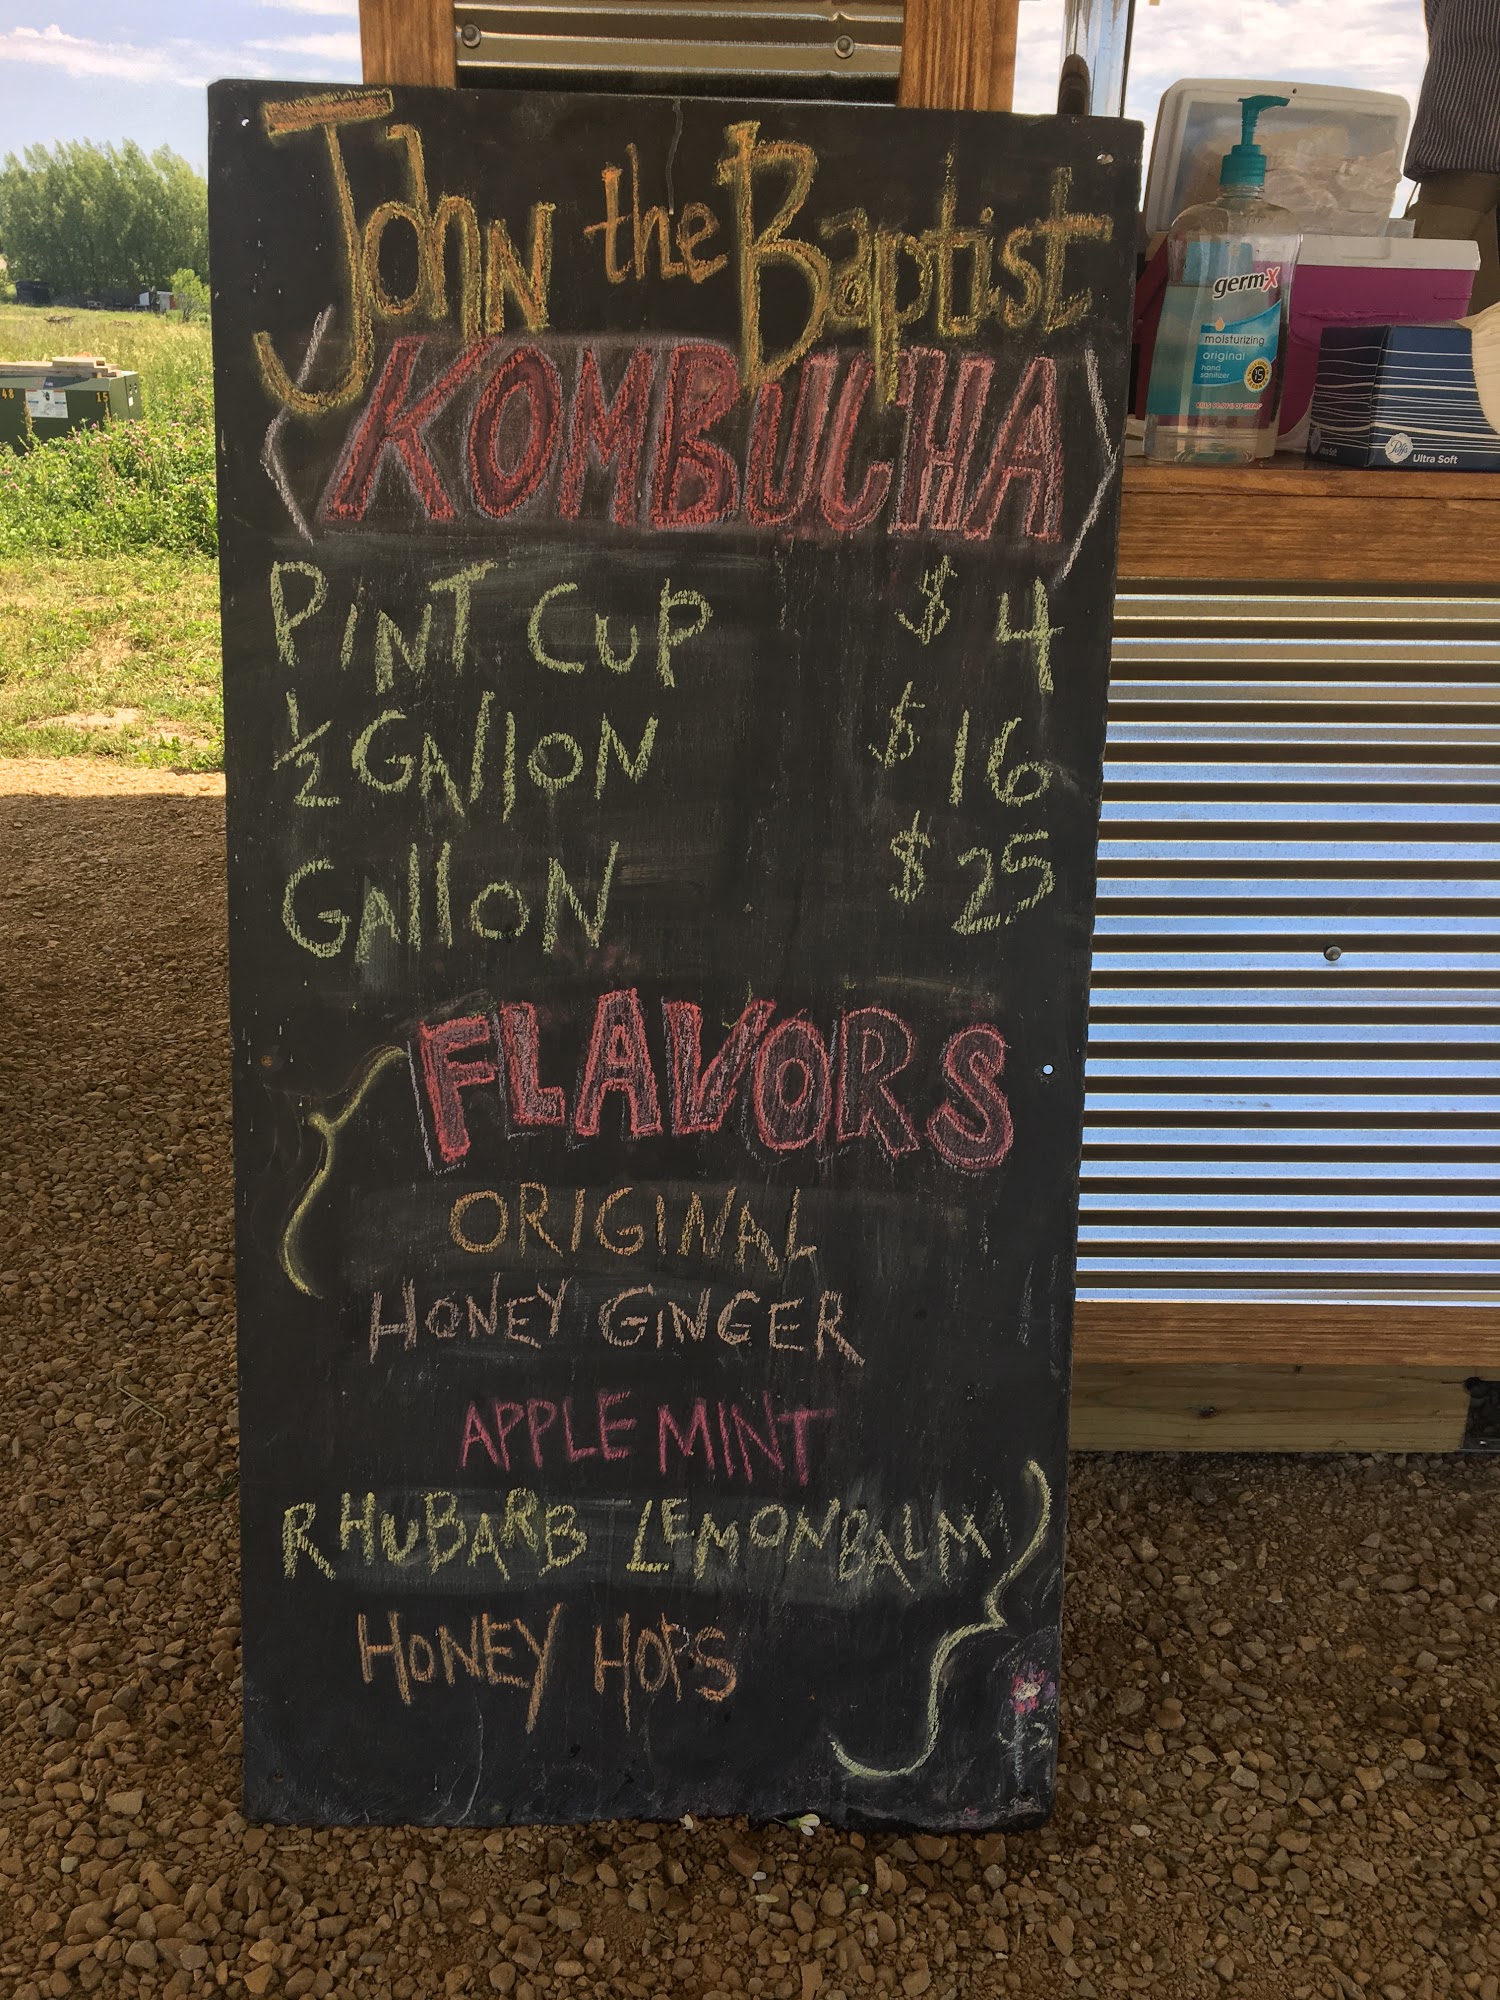 John the Baptist
KOMBUCHA
PINT CUP $ 4
1/2 GAllON $ 16
GAllON $ 25
FLAVORS
ORIGINAL
HONEY GINGER
APPLE MINT
RHUBARB LEMONBALM
HONEY HOPS
germ-x
moisturizing
original
hand
sanitizer
Puffs
Ultra Soft
48 15